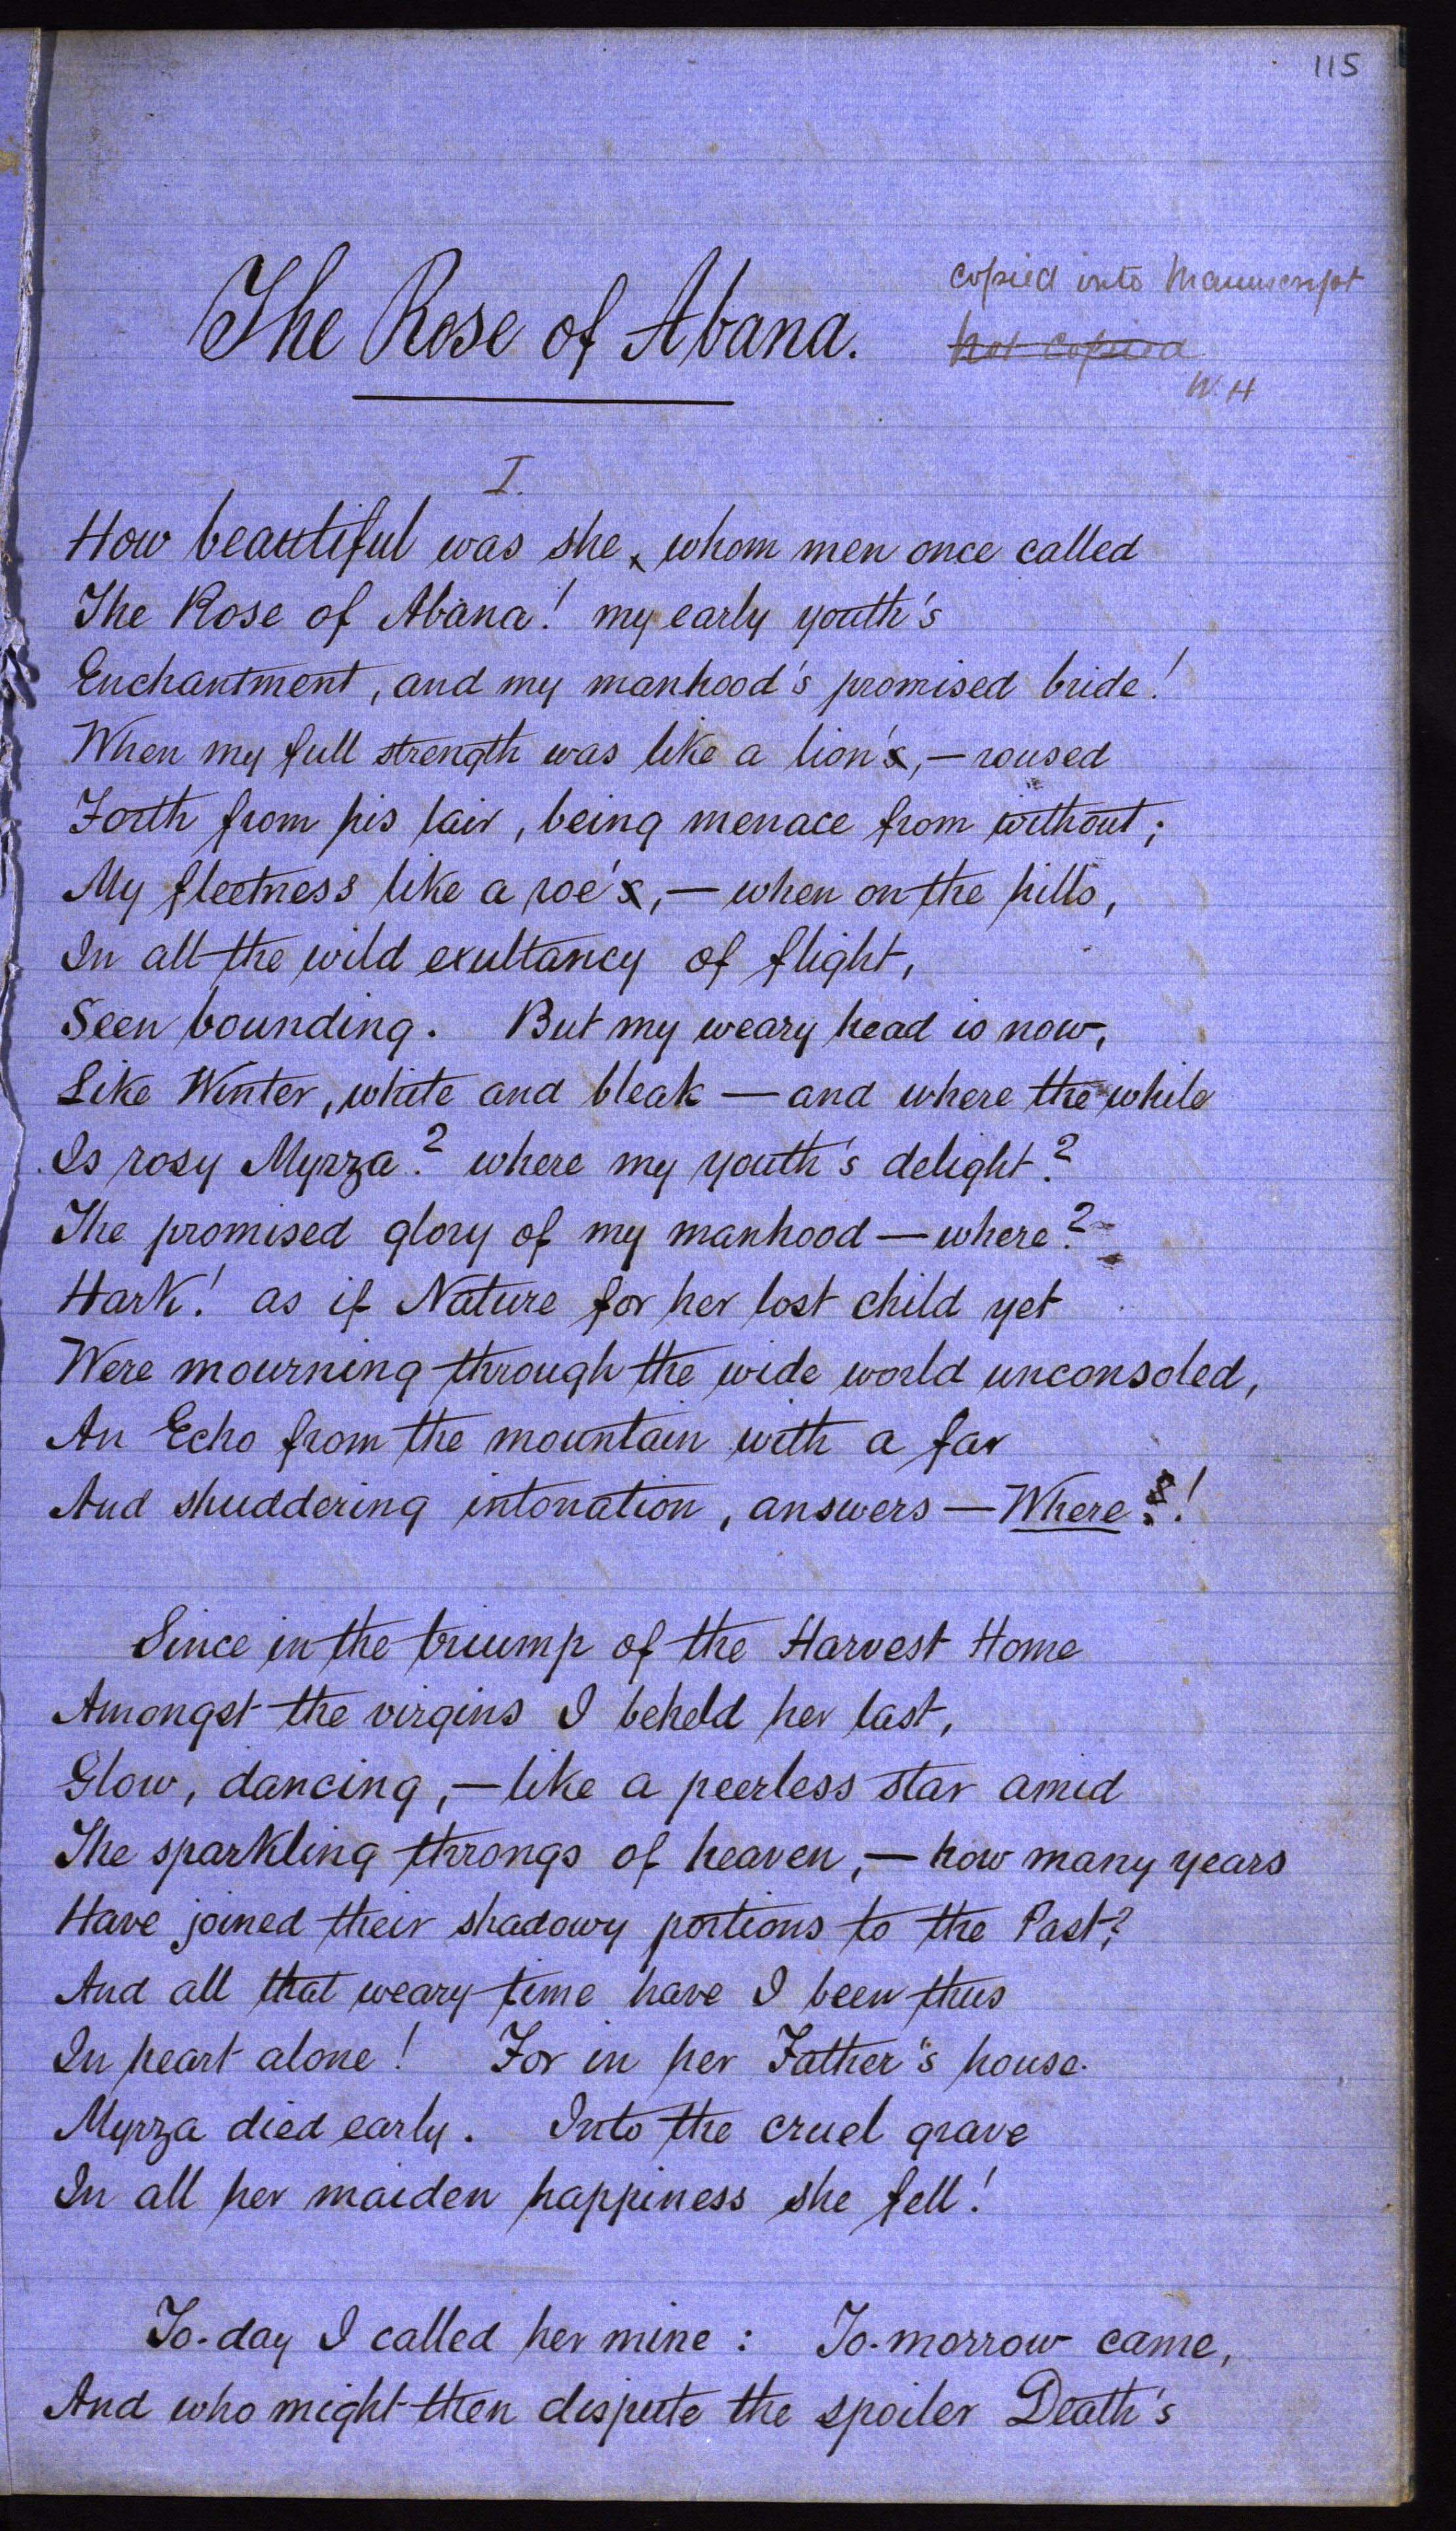 115
The Rose of Abana.
copied into Manuscript
not copied
W. H
I.
How beautiful was she, whom men once called
The Rose of Abana! my early youth's
Enchantment, and my manhood's promised bride!
When my full strength was like a lion's,—roused
Forth from his lair, being menace from without;
My fleetness like a roe's,—when on the hills,
In all the wild exultancy of flight,
Seen bounding. But my weary head is now,
Like Winter, white and bleak—and where the while
Is rosy Myrza? where my youth's delight?
The promised glory of my manhood—where?
Hark! as if Nature for her lost child yet
Were mourning through the wide world unconsoled,
An Echo from the mountain with a far
And shuddering intonation, answers—Where?!
Since in the triump of the Harvest Home
Amongst the virgins I beheld her last,
Glow, dancing,—like a peerless star amid
The sparkling throngs of heaven,—how many years
Have joined their shadowy portions to the Past?
And all that weary time have I been thus
In heart alone! For in her Father's house
Myrza died early. Into the cruel grave
In all her maiden happiness she fell!
To-day I called her mine: To-morrow came,
And who might then dispute the spoiler Death's